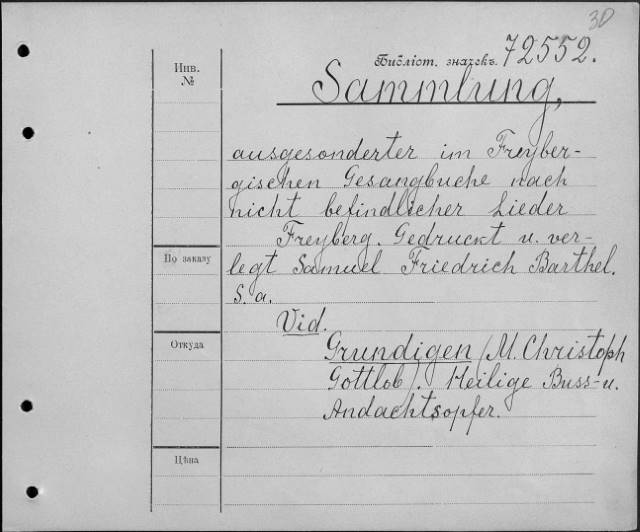 30
Библіот. значекъ. 72552.
Инв.
№
Sammlung,
ausgesonderter im Freyber-
gischen Gesangbuche nach
nicht befindlicher Lieder
Freyberg. Gedruckt u. ver-
По заказу
legt Samuel Friedrich Barthel.
S. a.
Vid.
Откуда
Grundigen (M. Christoph
Gottlob). Heilige Buss- u.
Andachtsopfer.
Цѣна